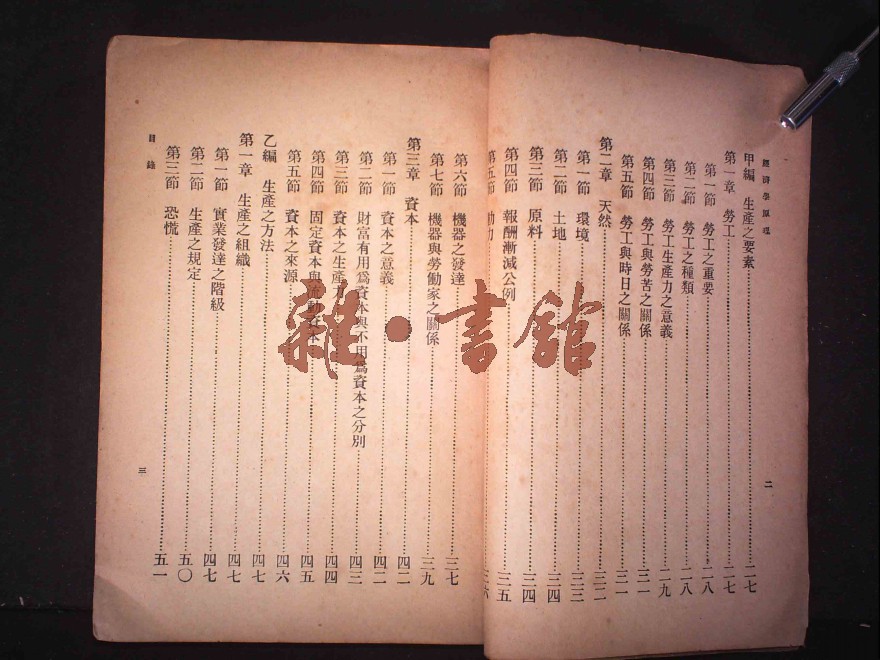 經濟學原理
甲編 生產之要素……二七
第一章 勞工……二七
第一節 勞工之重要……二八
第二節 勞工之種類……二八
第三節 勞工生產力之意義……二九
第四節 勞工與勞苦之關係……三一
第五節 勞工與時日之關係……三一
第二章 天然……三二
第一節 環境……三三
第二節 土地……三四
第三節 原料……三四
第四節 報酬漸減公例……三五
第五節 動力……三六
二
第六節 機器之發達……三七
第七節 機器與勞働家之關係……三九
第三章 資本……四二
第一節 資本之意義……四二
第二節 財富有用爲資本與不用爲資本之分別……四三
第三節 資本之生產力……四四
第四節 固定資本與流動資本……四五
第五節 資本之來源……四六
乙編 生產之方法……四七
第一章 生產之組織……四七
第一節 實業發達之階級……四七
第二節 生產之規定……五〇
第三節 恐慌……五一
目錄
三
雜·書館